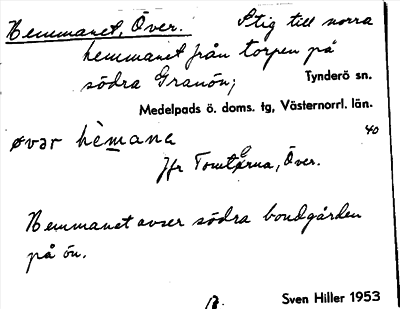 Hemmanet, Över. Stig till norra
hemmanet från torpen på
södra Granön; Tynderö sn.
Medelpads ö. doms. tg, Västernorrl. län.
40
øvər hèmanɑ
Jfr Tomterna, Över.
Hemmanet avser södra bondgården
på ön.
Sven Hiller 1953